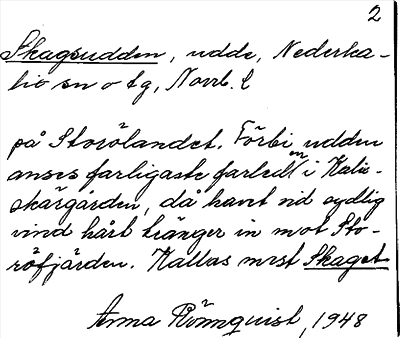 2
Skagsudden, udde, Nederka-
lix sn o tg, Norrb. l
på Storölandet. Förbi udden
anses farligaste farleden i Kalix-
skärgården, då havet vid sydlig
vind hårt tränger in mot Sto-
röfjärden. Kallas mest Skaget
Anna Rönnquist, 1948